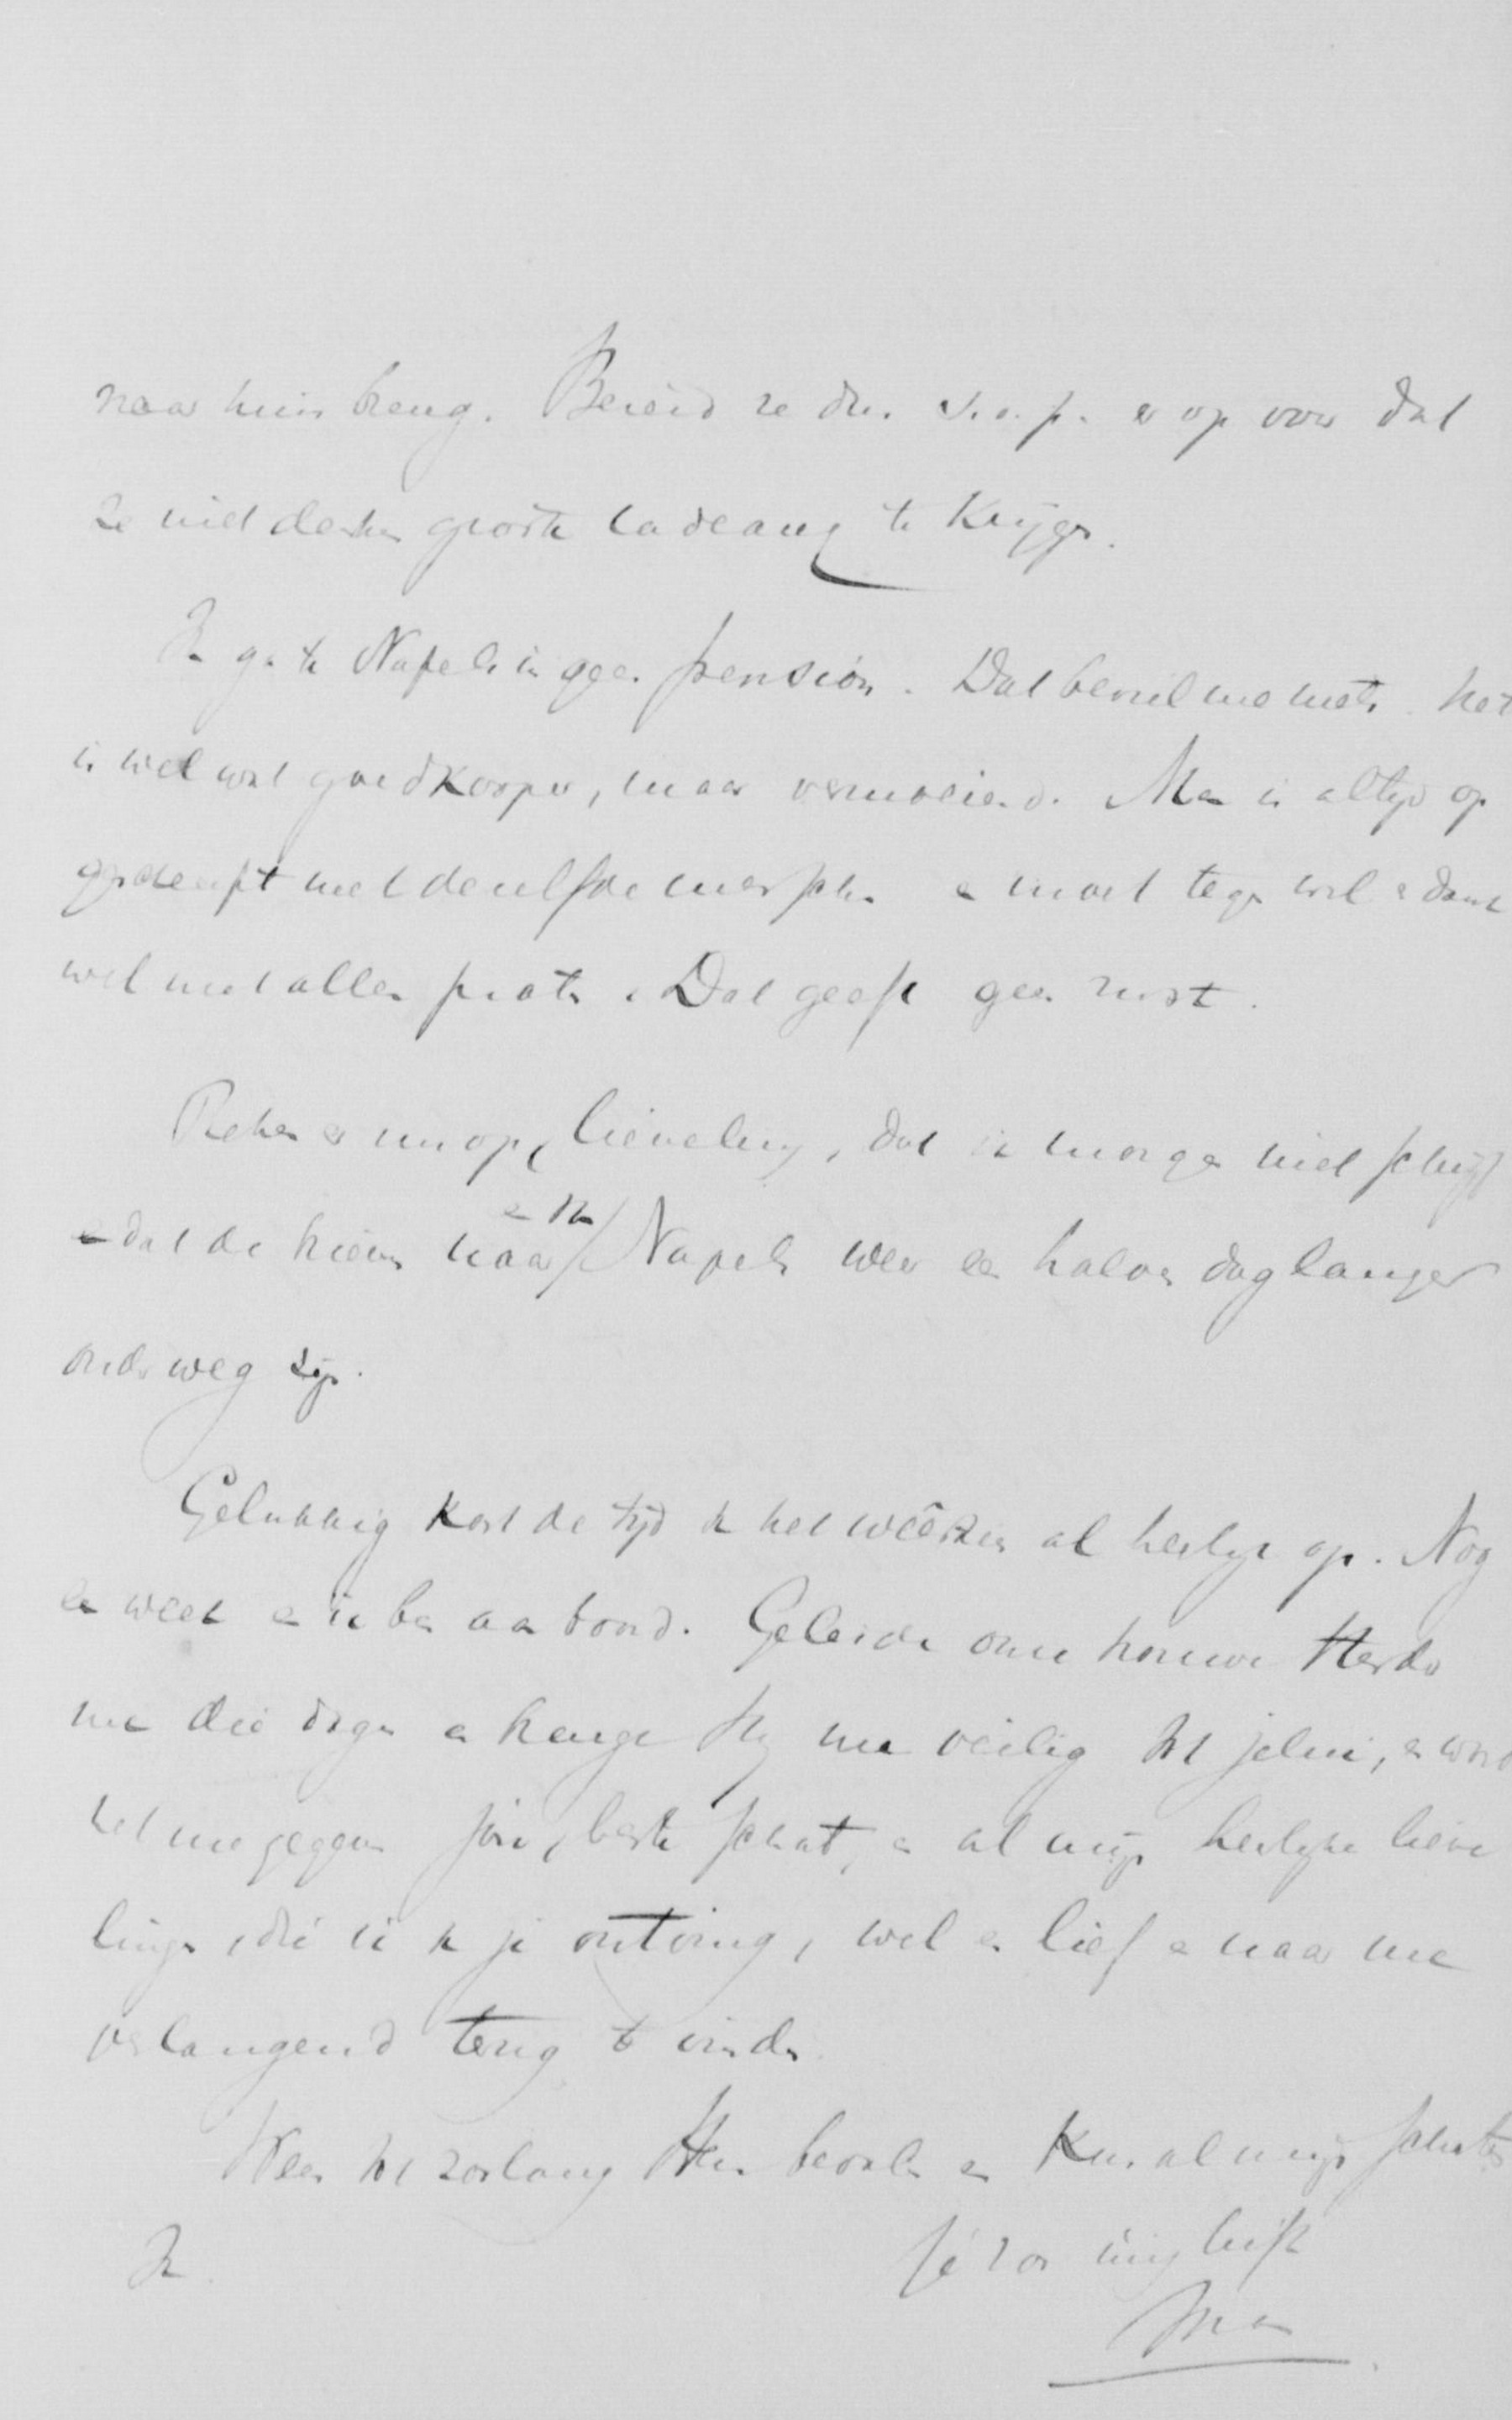 naar huis breng. Bereid ze dus s.v.p. er op voor dat
ze niet denken groote cadeaux te krijgen.
Ik ga te Napels in geen pension. Dat bevalt me niets. Het
is wel wat goedkooper, maar vermoeiend. Men is altijd op
met dezelfde menschen en moet tegen wil en dank
wel met allen praten. Dat geeft geen rust.
Reken er nu op, lieveling, dat ik morgen niet schrijf
en dat de brieven naar Napels weer een halven dag langer
onderweg zijn.
Gelukkig kort de tijd de het weêrzien al heerlijk op. Nog
een week en ik ben aan boord. Geleide onze trouwe Herder
me die dagen en brenge Hij me veilig tot jelui, en worde
het me gegeven jou, beste schat, en al mijn heerlijke lieve
lingen, die ik je ontving, wel en lief en naar me
verlangend terug te vinden.
Wees tot zoolang Hem bevolen en kus al mijn schatten
Ik. je zoo innig liefh.
Man